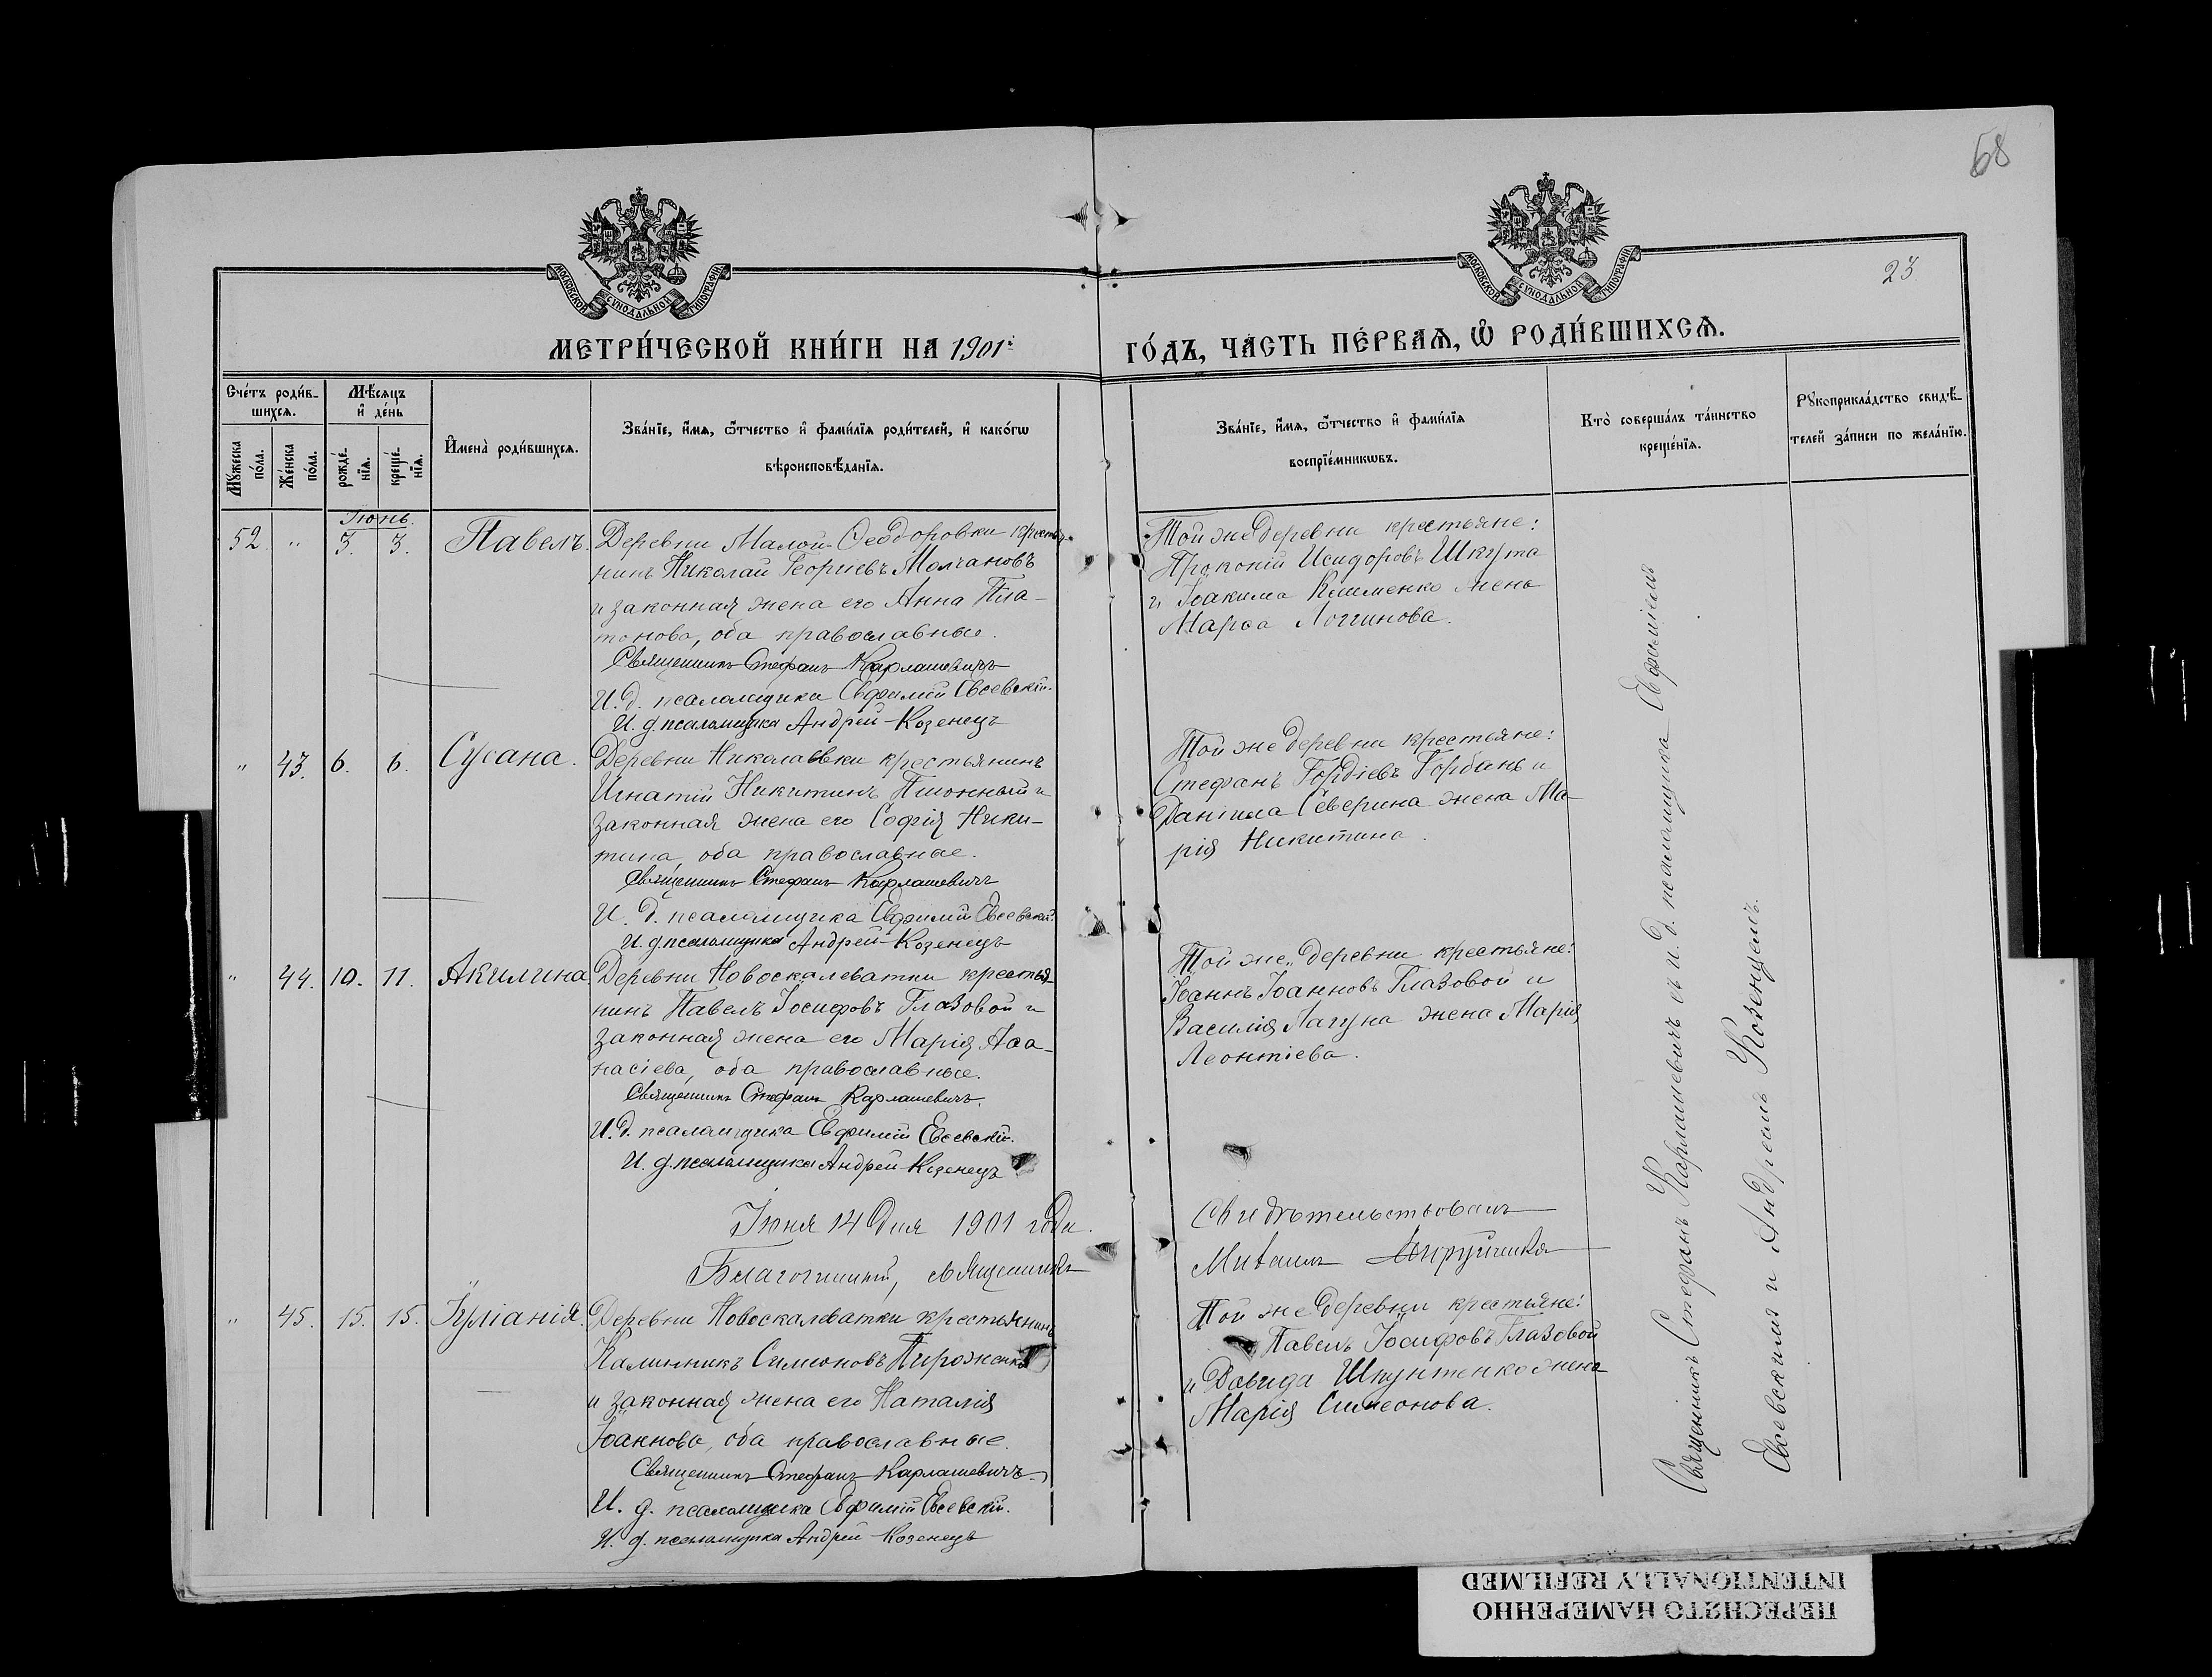 68
23
МОСКОВСКОЙ СѴНОДАЛЬНОЙ ТИПОГРАФІИ
МОСКОВСКОЙ СѴНОДАЛЬНОЙ ТИПОГРАФІИ
МЕТРИ́ЧЕСКОЙ КНИ́ГИ НА 1901й
ГО́ДЪ, ЧА́СТЬ ПЕ́РВАѦ, Ѽ РОДИ́ВШИХСѦ.
Сче́тъ роди́в-
шихсѧ.
Мѣ́сѧцъ
и҆ де́нь
Мꙋ́жеска
по́ла.
Же́нска
по́ла.
рожде́-
нїѧ.
креще́-
нїѧ.
И҆мена̀ роди́вшихсѧ.
Зва́нїе, и҆́мѧ, ѻ҆́тчество и҆ фами́лїѧ роди́телей, и҆ како́гѡ
вѣроисповѣ́данїѧ.
Зва́нїе, и҆́мѧ, ѻ҆́тчество и҆ фами́лїѧ
воспрїе́мникѡвъ.
Кто̀ соверша́лъ та́инство
креще́нїѧ.
Рꙋкоприкла́дство свидѣ́-
телей за́писи по жела́нїю.
Іюнь.
52. " 3. 3. Павелъ.
Деревни Малой-Ѳеодоровки крестья-
нинъ Николай Георгіевъ Молчановъ
и законная жена его Анна Пла-
тонова, оба православные.
Священникъ Стефанъ Карлашевичъ
И. д. псаломщика Евфимій Евсевскій.
И. д. псаломщика Андрей Козенецъ
Той же деревни крестьяне:
Прокопій Исидоровъ Шкута
и Іоакима Клименко жена
Марѳа Логгинова.
" 43. 6. 6. Сусана.
Деревни Николаевки крестьянинъ
Игнатій Никитинъ Пшонный и
законная жена его Софія Ники-
тина, оба православные.
Священникъ Стефанъ Карлашевичъ
И. д. псаломщика Евфимій Евсевскій.
И. д. псаломщика Андрей Козенецъ
Той же деревни крестьяне:
Стефанъ Гордіевъ Горбань и
Даніила Северина жена Ма-
рія Никитина.
" 44. 10. 11. Акилина.
Деревни Новоскалеватки крестья-
нинъ Павелъ Іосифовъ Глазовой и
законная жена его Марія Аѳа-
насіева, оба православные.
Священникъ Стефанъ Карлашевичъ.
И. д. псаломщика Евфимій Евсевскій.
И. д. псаломщика Андрей Козенецъ
Той же деревни крестьяне:
Іоаннъ Іоанновъ Глазовой и
Василія Лагуна жена Марія
Леонтіева.
Іюня 14 дня 1901 года.
Свидѣтельствовалъ
Благочинный, священникъ
Михаилъ
" 45. 15. 15. Іуліанія.
Деревни Новоскалеватки крестьянинъ
Калинникъ Симоновъ Пироженко
и законная жена его Наталія
Іоаннова, оба православные.
Священникъ Стефанъ Карлашевичъ
И. д. псаломщика Евфимій Евсевскій.
И. д. псаломщика Андрей Козенецъ
Той же деревни крестьяне:
Павелъ Іосифовъ Глазовой
и Давида Шпунтенко жена
Марія Симеонова.
Священникъ Стефанъ Карлашевичъ съ и. д. псаломщика Евфиміемъ
Евсевскимъ и Андреемъ Козенцемъ.
ПЕРЕСНЯТО НАМЕРЕННО
INTENTIONALLY REFILMED